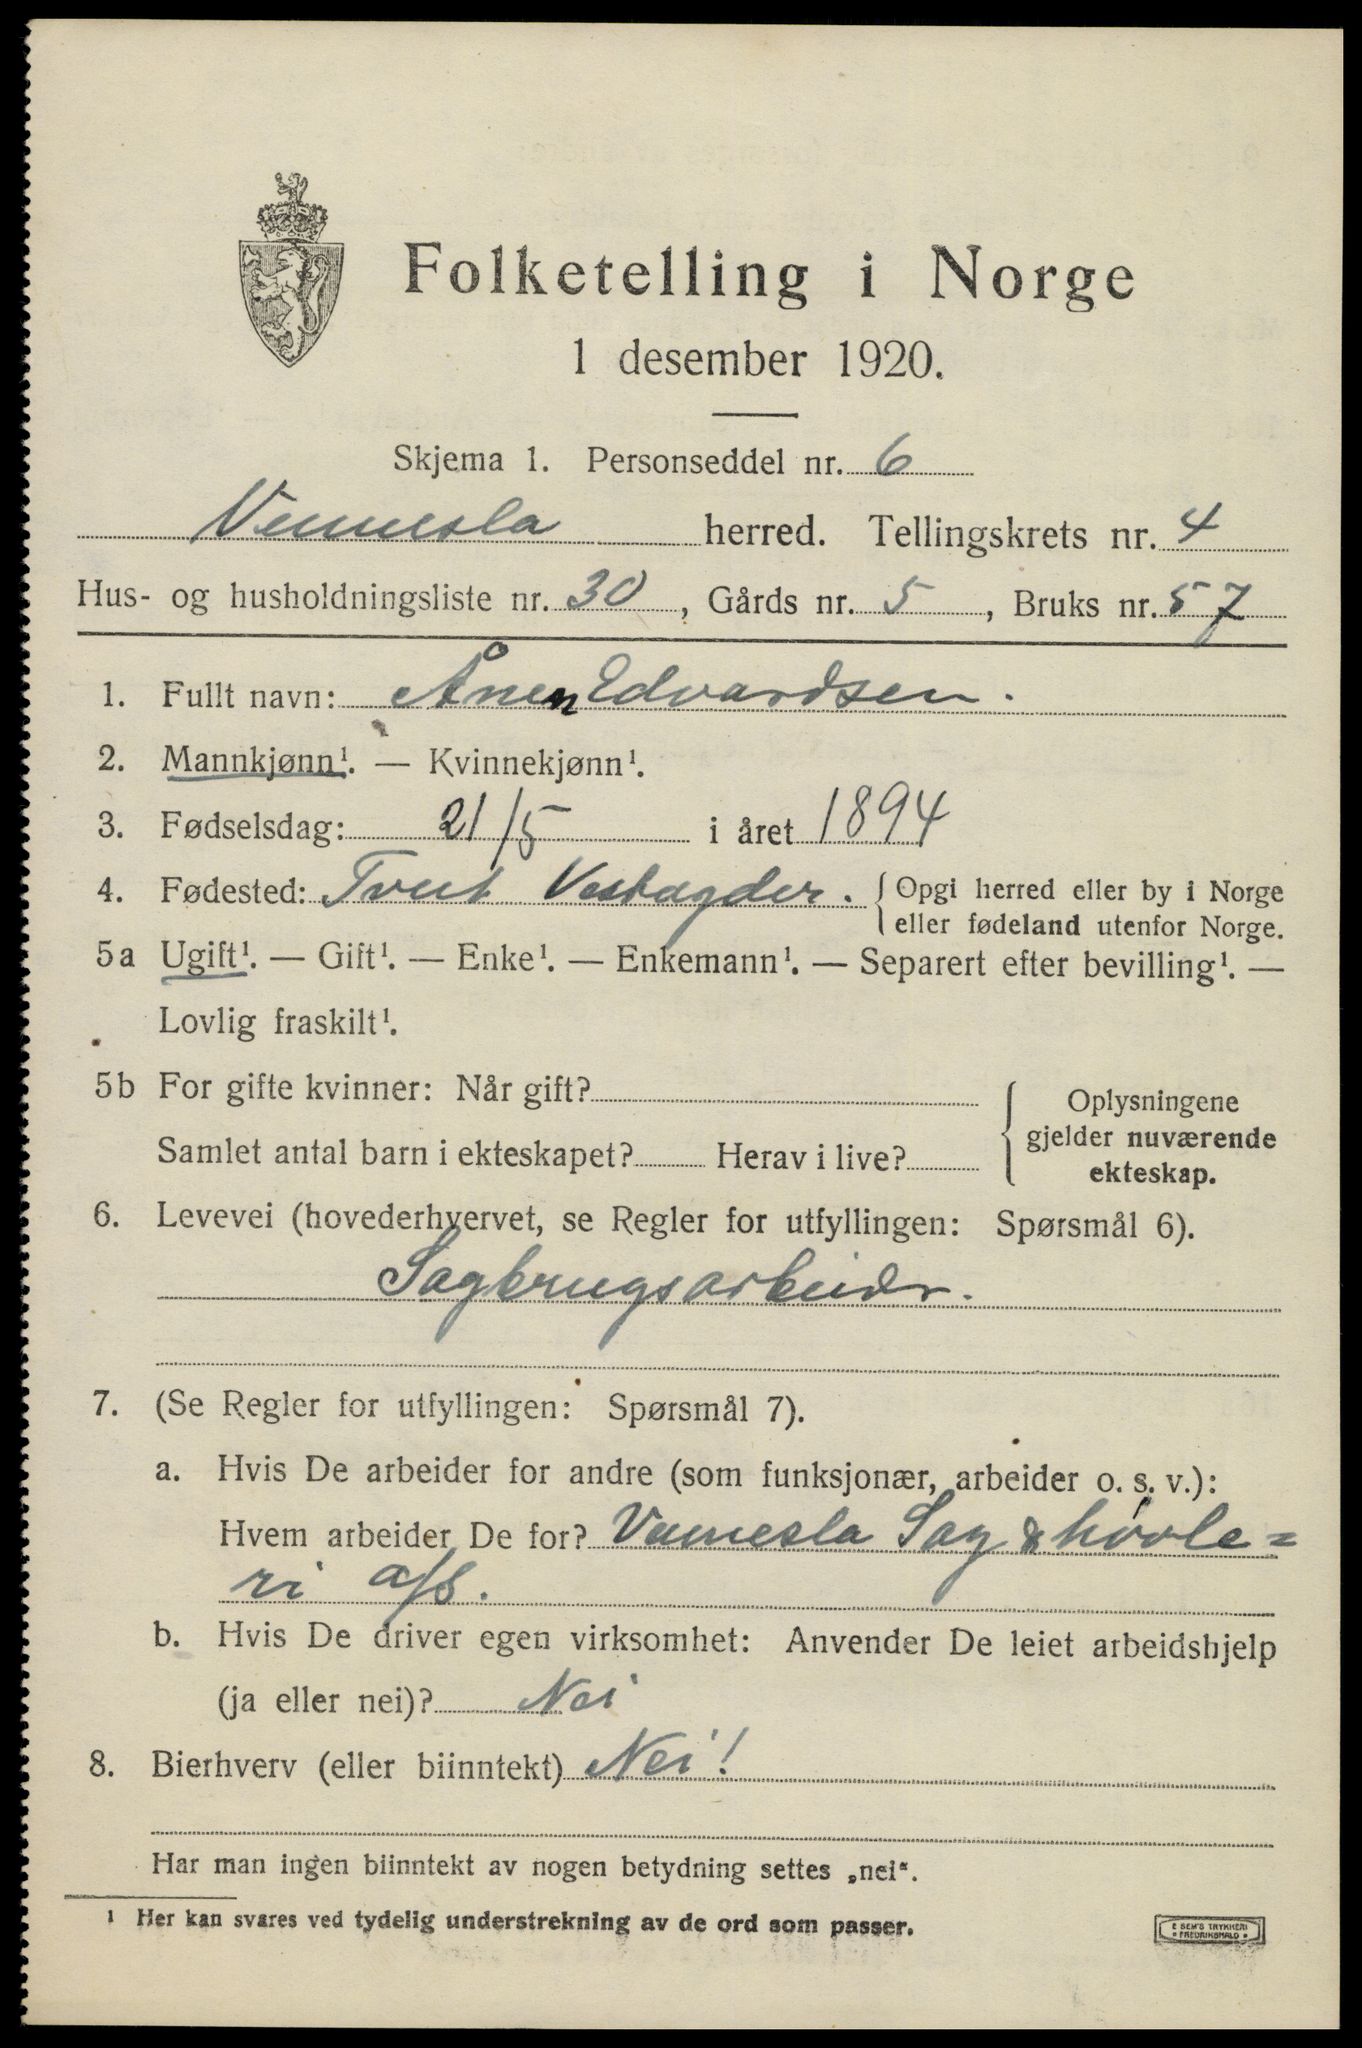 Folketelling i Norge
1 desember 1920.
Skjema 1. Personseddel nr. 6
Vennesla herred. Tellingskrets nr. 4
Hus- og husholdningsliste nr. 30, Gårds nr. 5, Bruks nr. 57
1. Fullt navn: Ånen Edvardsen.
2. Mannkjønn¹. — Kvinnekjønn¹.
3. Fødselsdag: 21/5 i året 1894
4. Fødested: Tveit Vestagder. { Opgi herred eller by i Norge
eller fødeland utenfor Norge.
5a Ugift¹. — Gift¹. — Enke¹. — Enkemann¹. — Separert efter bevilling¹. —
Lovlig fraskilt¹.
5b For gifte kvinner: Når gift?
Samlet antal barn i ekteskapet? Herav i live?
Oplysningene
gjelder nuværende
ekteskap.
6. Levevei (hovederhvervet, se Regler for utfyllingen: Spørsmål 6).
Sagbrugsarbeider.
7. (Se Regler for utfyllingen: Spørsmål 7).
a. Hvis De arbeider for andre (som funksjonær, arbeider o. s. v.):
Hvem arbeider De for? Vennesla Sag & høvle=
ri a/s.
b. Hvis De driver egen virksomhet: Anvender De leiet arbeidshjelp
(ja eller nei)? Nei
8. Bierhverv (eller biinntekt) Nei!
Har man ingen biinntekt av nogen betydning settes „nei“.
1 Her kan svares ved tydelig understrekning av de ord som passer.
E SEM'S TRYKKERI
FREDRIKSHALD